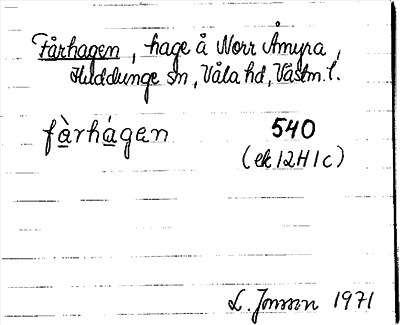 Fårhagen, hage å Norr Åmyra,
Huddunge sn, Våla hd, Västm. l.
fàrhágen 540
(ek 12H1c)
L. Jonsson 1971